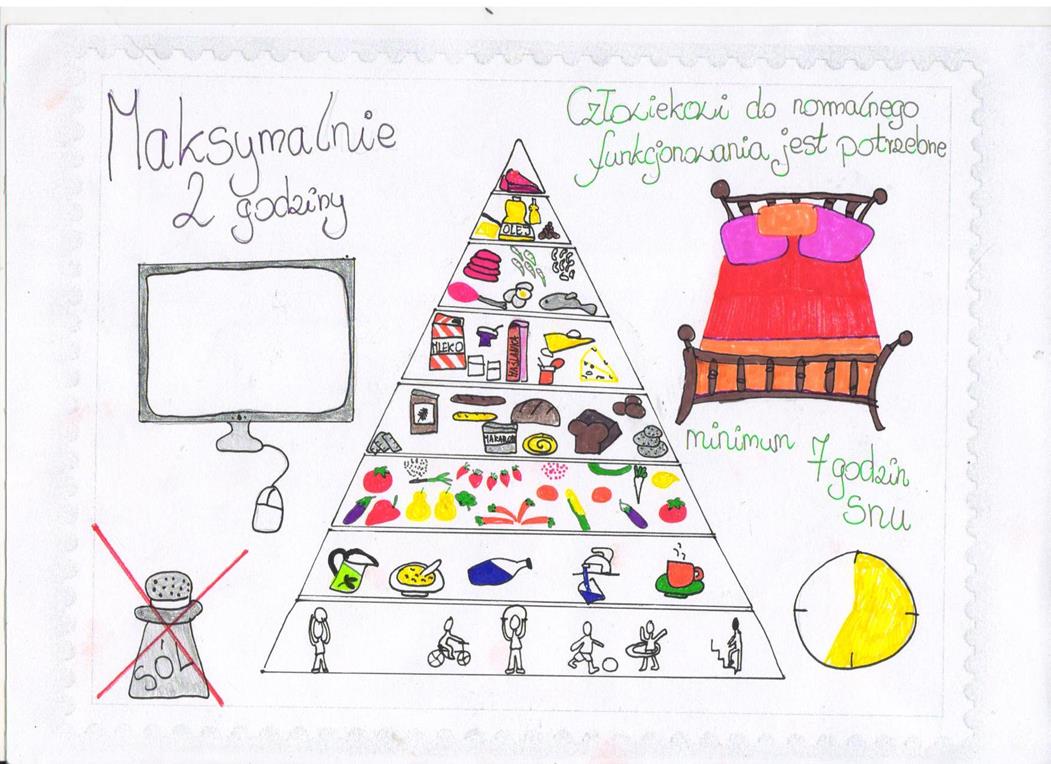 Maksymalnie
2 godziny
Człowiekowi do normalnego
funkcjonowania jest potrzebne
OLEJ
MLEKO
MAŚLANKA
MAKARON
minimum 7 godzin
snu
SÓL